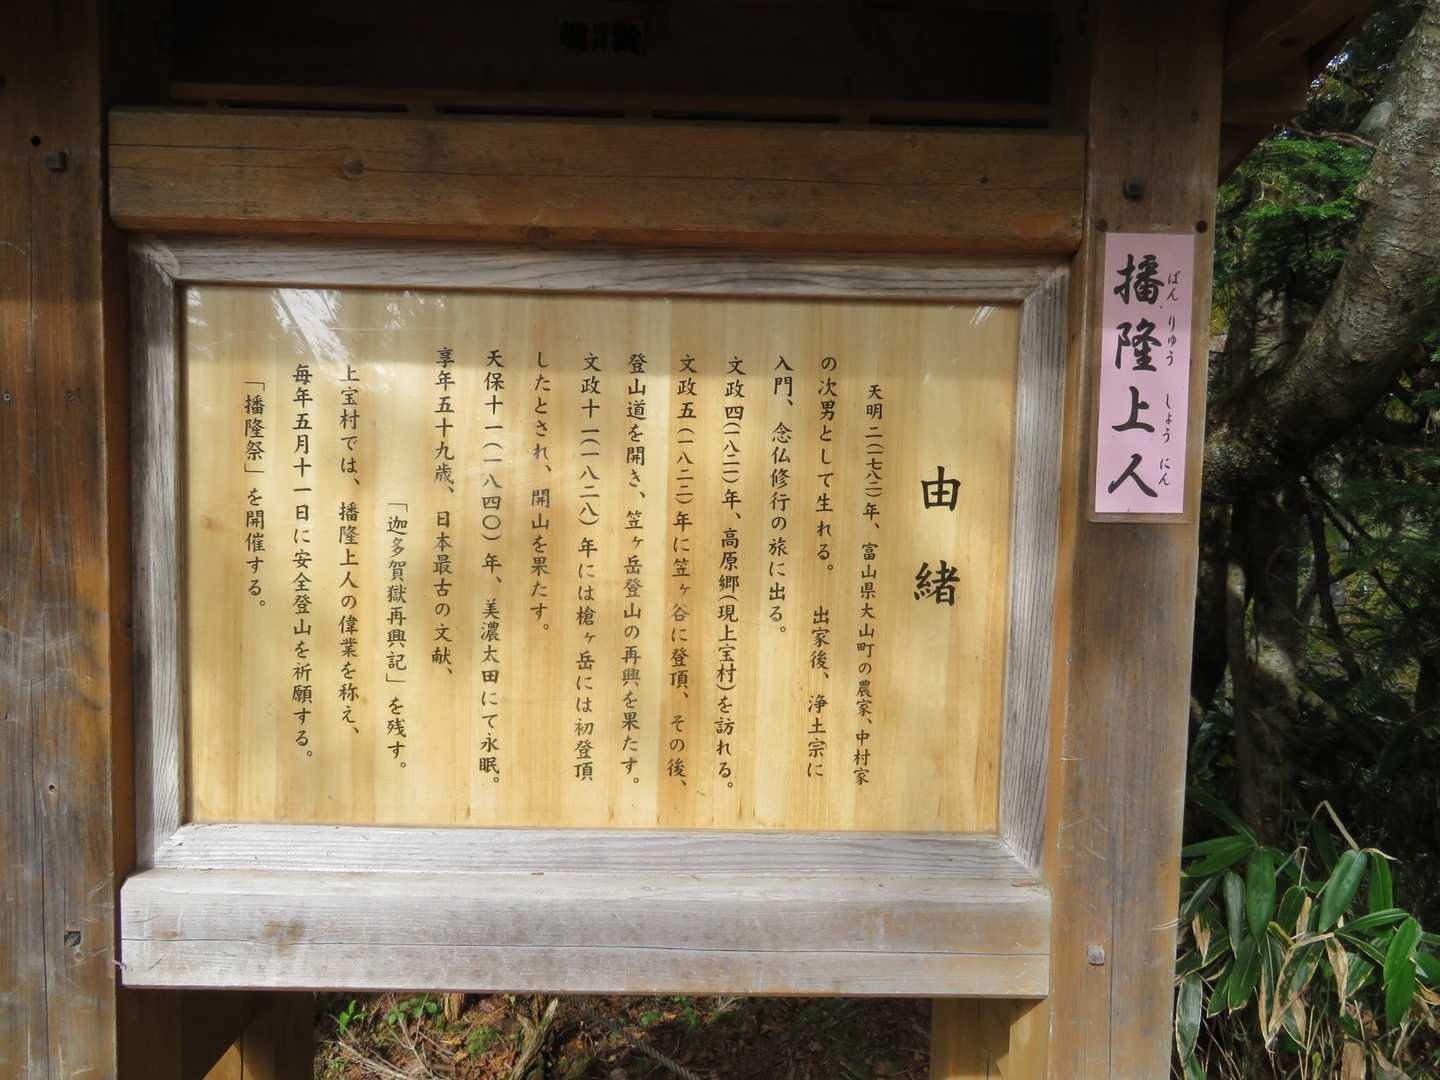 播隆上人
ばん りゅう しょう にん
由緒
天明二(一七八二)年、富山県大山町の農家、中村家
の次男として生れる。 出家後、浄土宗に
入門、念仏修行の旅に出る。
文政四(一八二一)年、高原郷(現上宝村)を訪れる。
文政五(一八二二)年に笠ヶ谷に登頂、その後、
登山道を開き、笠ヶ岳登山の再興を果たす。
文政十一(一八二八)年には槍ヶ岳には初登頂
したとされ、開山を果たす。
天保十一(一八四〇)年、美濃太田にて永眠。
享年五十九歳、日本最古の文献、
「迦多賀獄再興記」を残す。
上宝村では、播隆上人の偉業を称え、
毎年五月十一日に安全登山を祈願する。
「播隆祭」を開催する。